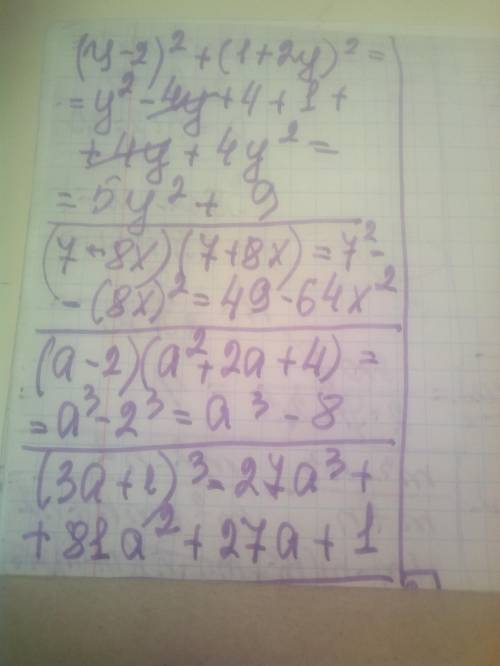 (y-2)² + (1+2y)² =
= y² - 4y + 4 + 1 +
+ 4y + 4y² =
= 5y² + 9
(7-8x)(7+8x) = 7² -
- (8x)² = 49 - 64x²
(a-2)(a²+2a+4) =
= a³ - 2³ = a³ - 8
(3a+1)³ = 27a³ +
+ 81a² + 27a + 1